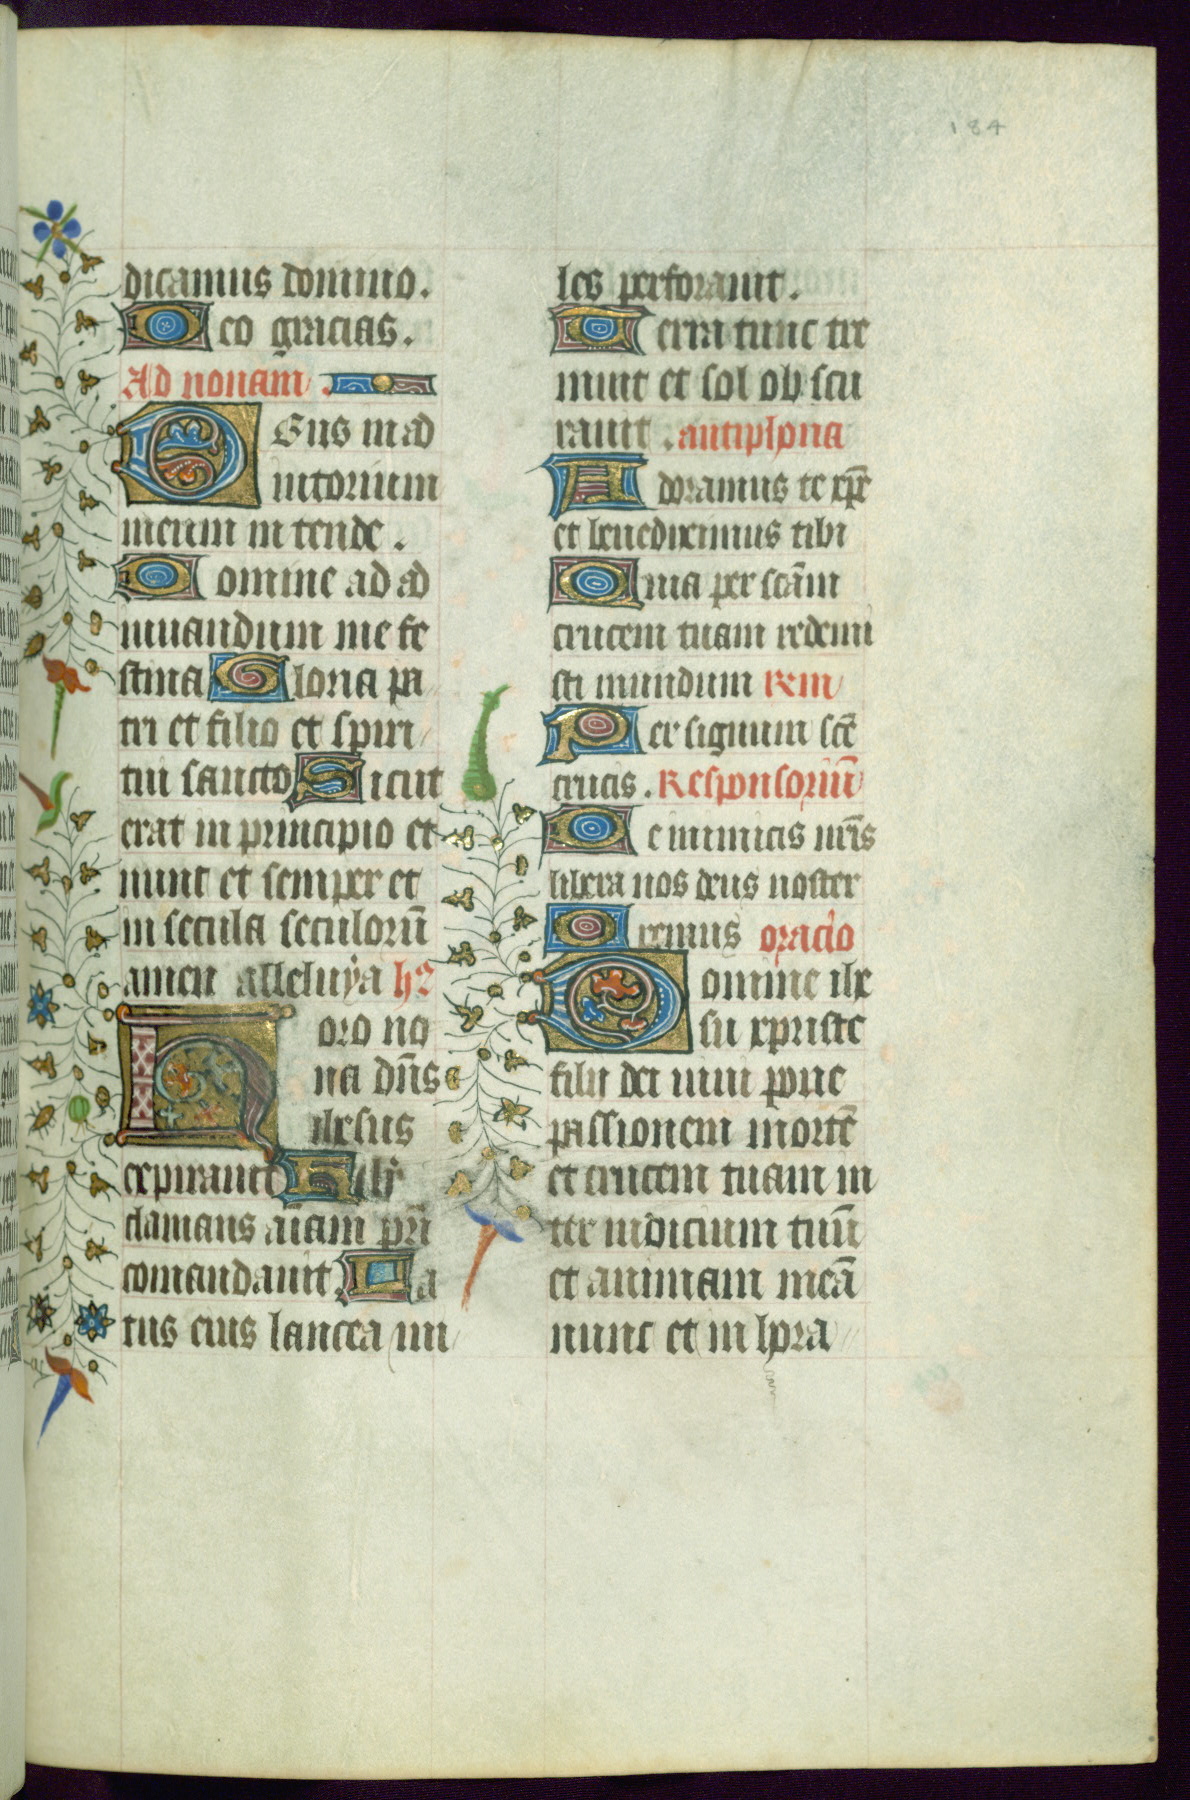 184
dicamus domino.
Deo gracias.
Ad nonam.
DEus in ad
iutorium
meum in tende.
Domine ad ad
iuuandum me fe
stina Gloria pa
tri et filio et spiri
tui sancto Sicut
erat in principio et
nunc et semper et
in secula seculorū
amen alleluya
Hora no
na dn̄s
ihesus
expirauit Hely
clamans aīam pr̄i
comandauit. La
tus eius lancea mi
les perforauit.
Terra tunc tre
muit et sol ob scu
rauit. antiphona
Adoramus te xp̄e
et benedicimus tibi
Quia per sc̄am
crucem tuam redemi
sti mundum
Per signum sc̄e
crucis. Responsoriū
De inimicis nr̄is
libera nos deus noster
Oremus oracio
Domine ihe
su xpriste
filii dei uiui pone
passionem mortē
et crucem tuam in
ter iudicium tuū
et animam meā
nunc et in hora